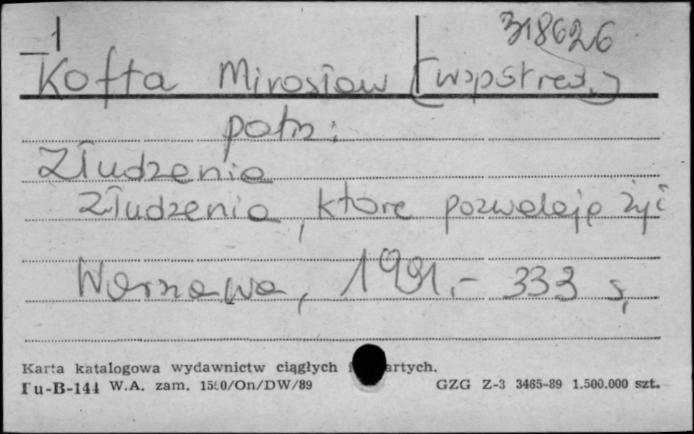 1
318626
Kofta Mirosław (współred.)
patrz:
Złudzenia
Złudzenia, które pozwalają żyć
Warszawa, 1991.- 333 s.
Karta katalogowa wydawnictw ciągłych i zwartych.
Pu-B-144 W.A. zam. 1500/On/DW/89 GZG Z-3 3465-89 1.500.000 szt.